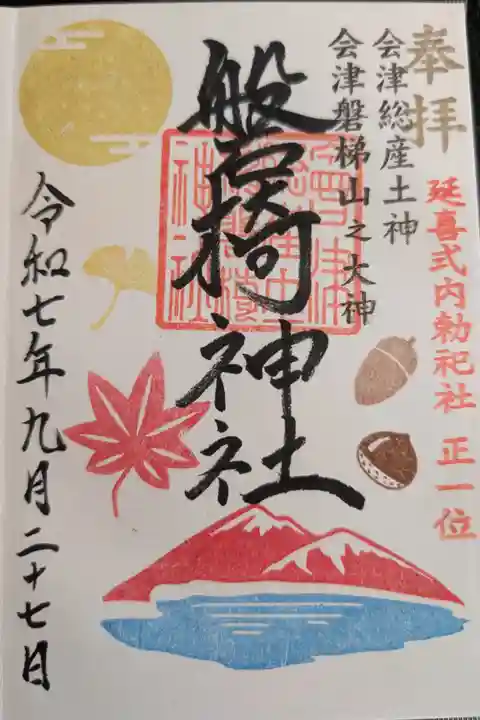 奉拝
延喜式内勅祀社 正一位
会津総産土神
会津磐梯山之大神
磐椅神社
令和七年九月二十七日